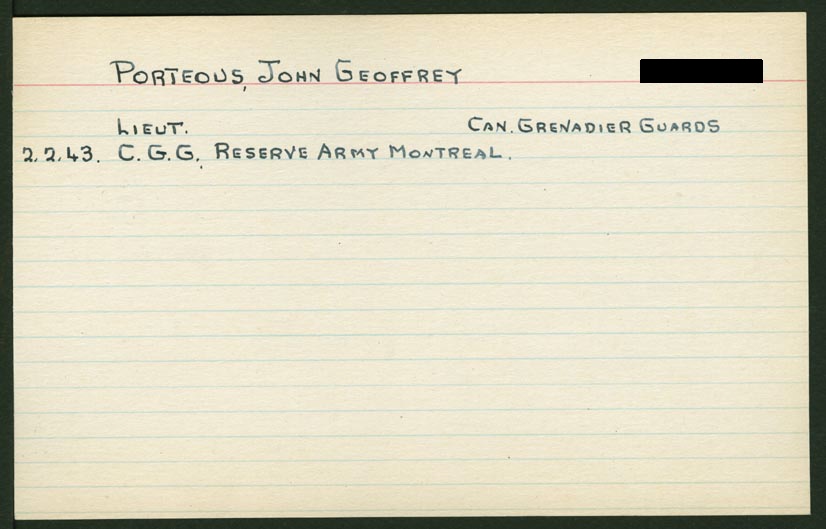 PORTEOUS, JOHN GEOFFREY
LIEUT. CAN. GRENADIER GUARDS
2.2.43. C.G.G. RESERVE ARMY MONTREAL.